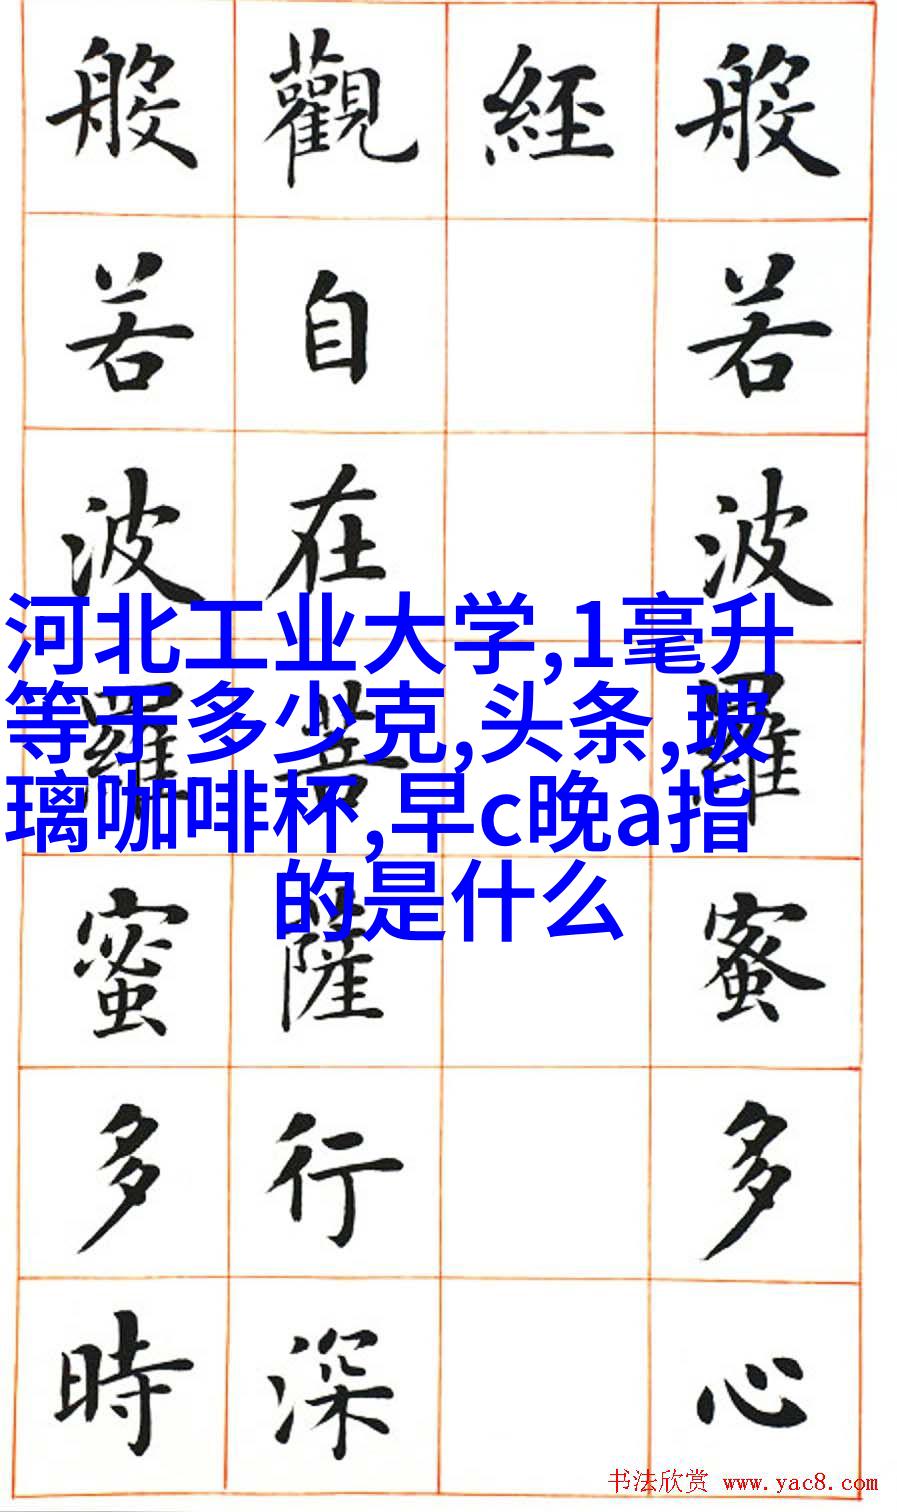 般若波羅蜜多心
經
觀自在菩薩行深
般若波羅蜜多時
河北工业大学,1毫升
等于多少克,头条,玻
璃咖啡杯,早c晚a指
的是什么
书法欣赏 www.yac8.com